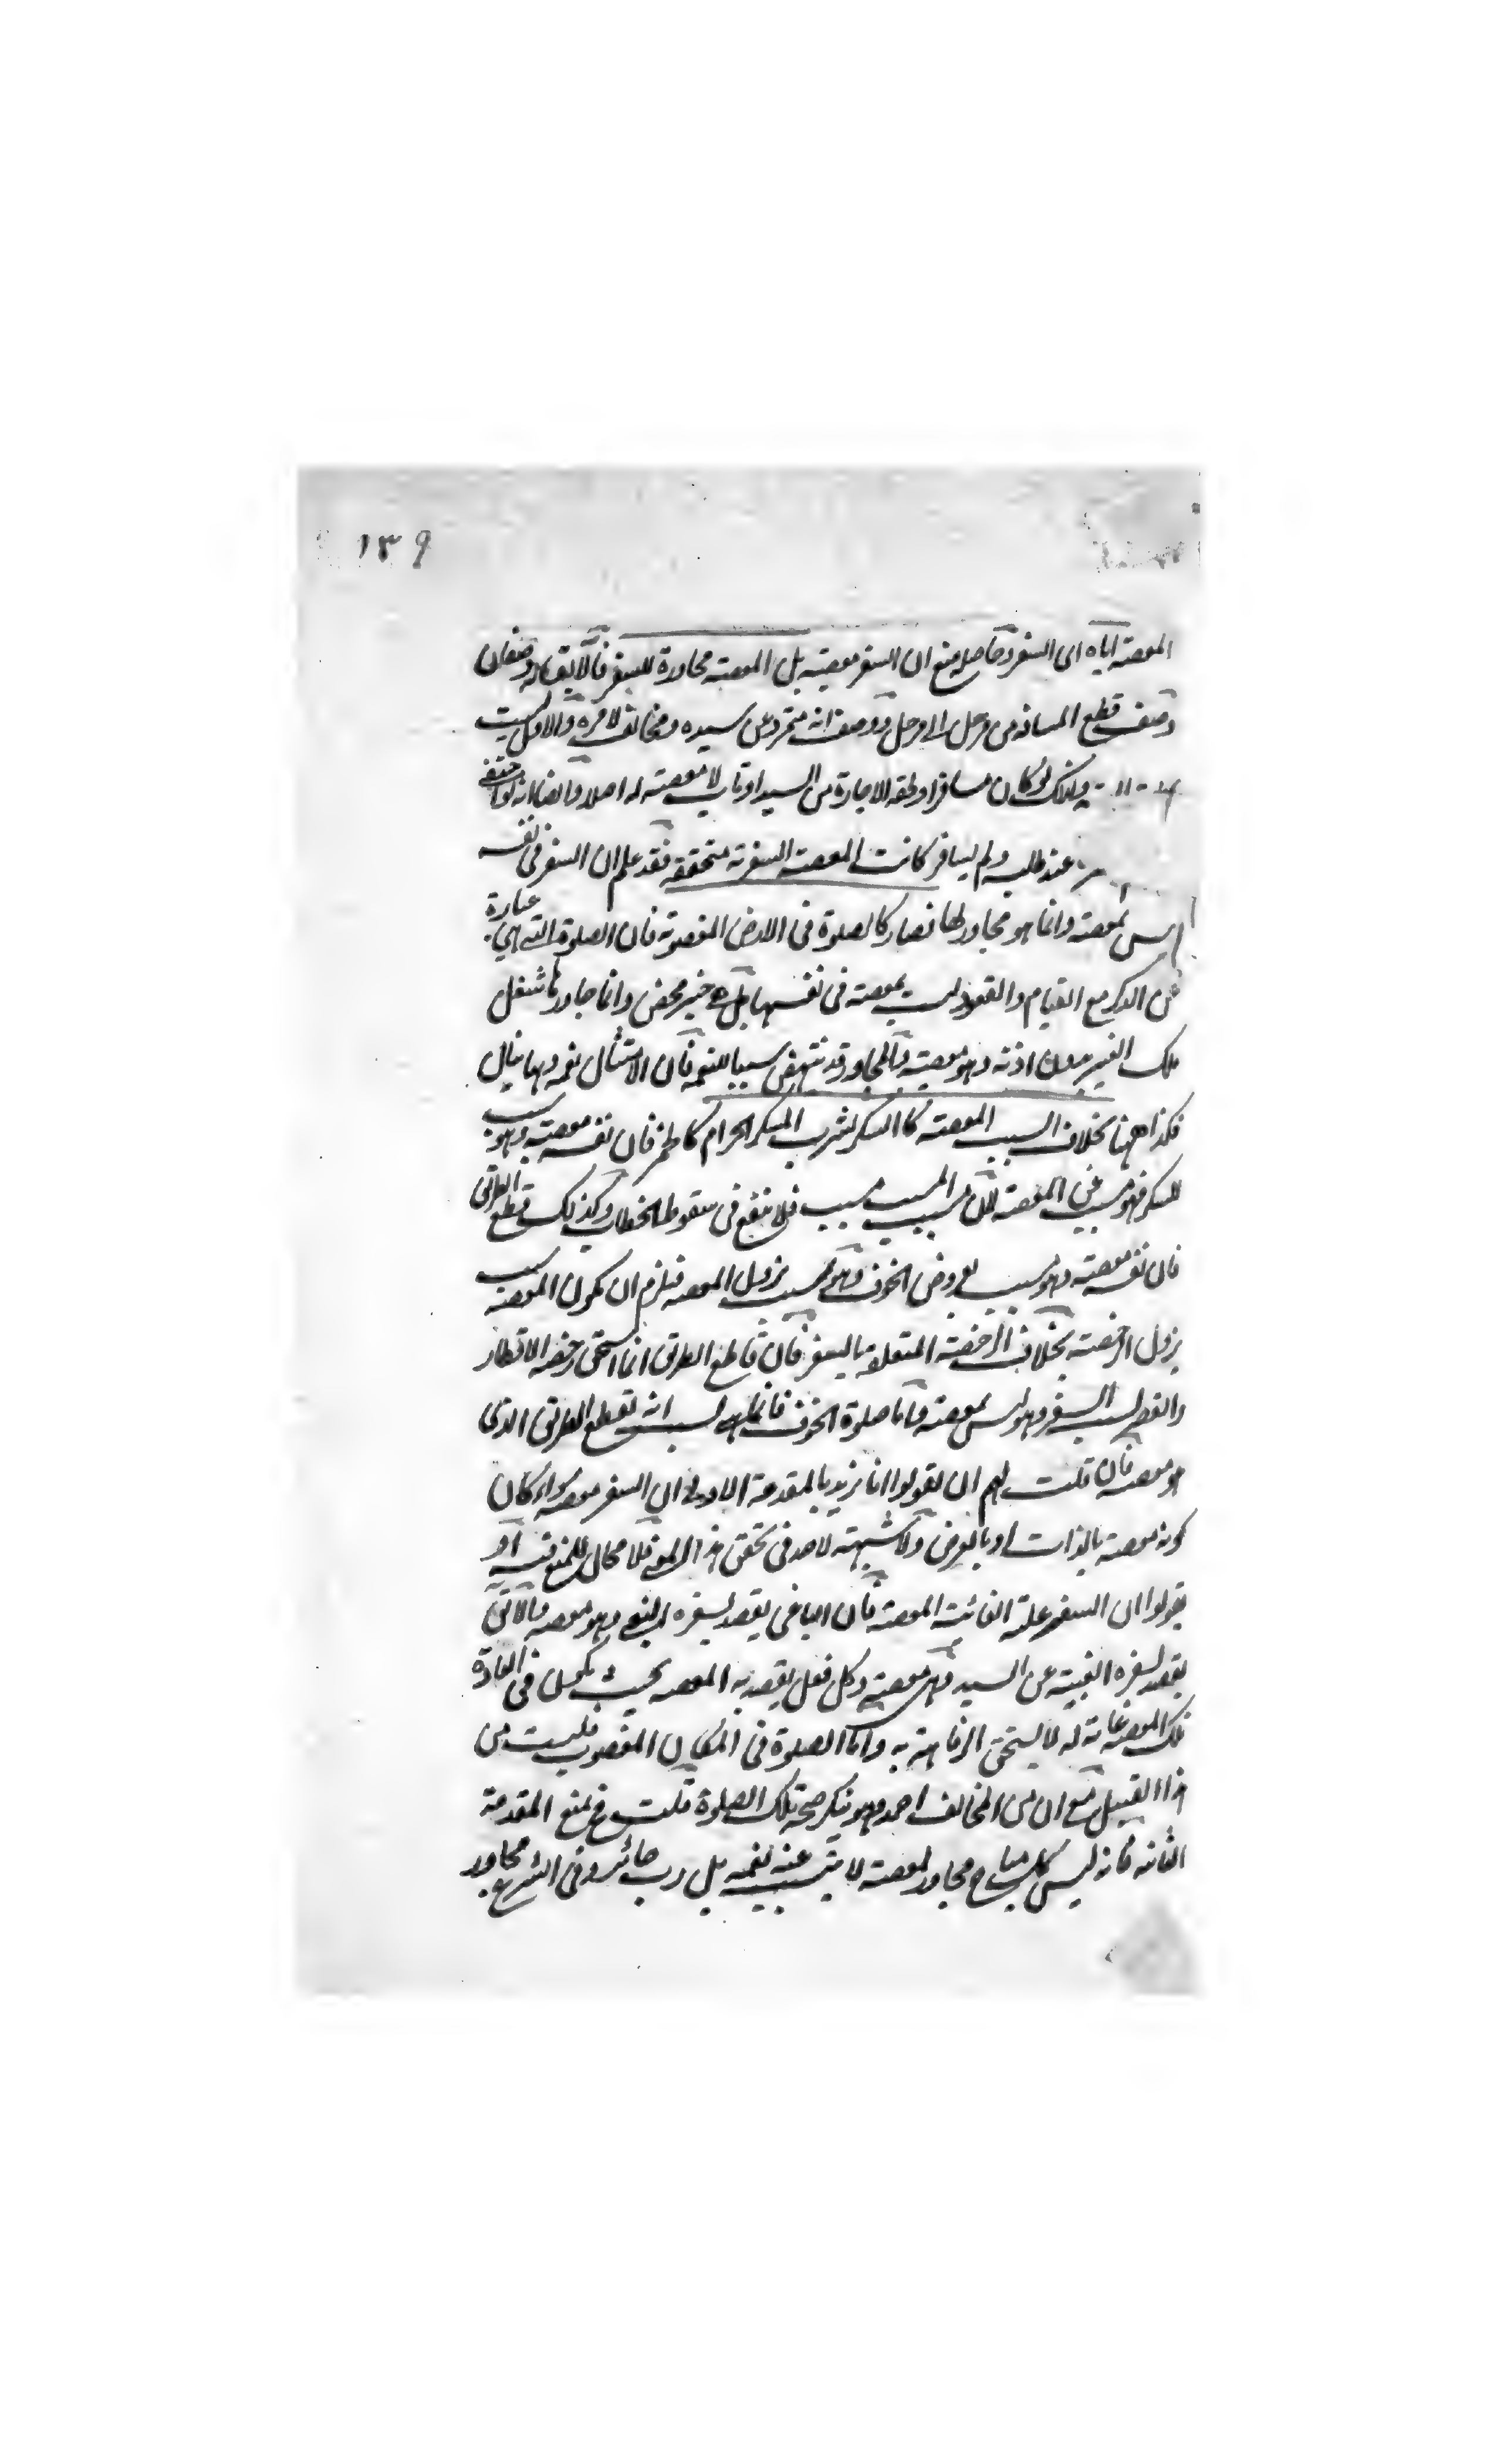 ١٣٩
المعصية اياه اى السفر وحاصله منع ان السفر معصية بل المعصية مجاورة للسفر فالآبق له وصفان
وصف قطع المسافة من مرحل الى مرحل ووصف انه متمرد عن سيده ومخالف لامره والاول ليست
ولذلك لو كان مسافرا ولحقه الاجازة من السيد او تاب لا معصية له اصلا وايضا انه لو اختفى
عند طلبه ولم يسافر كانت المعصية السفرية متحققة فقد علم ان السفر فى نفسه
ليس بمعصية وانما هو مجاور لها فصار كالصلوة فى الارض المغصوبة فان الصلوة التى هى عبارة
عن الذكر مع القيام والقعود ليست بمعصية فى نفسها بل هى خير محض وانما جاورها شغل
ملك الغير بدون اذنه وهو معصية والمجاور قد ينتهض سببا للنعمة فان الامتثال نعمة وبها ينال
فكذا ههنا بخلاف السبب المعصية كالسكر بشرب المسكر الحرام كالخمر فان نفسه معصية وهو سبب
للسكر فهو مسبب عن المعصية لان مسبب المسبب مسبب فلا ينفع فى سقوط الخطاب وكذلك قطع الطريق
فان نفسه معصية وهو سبب لعروض الخوف وهو سبب نزول المعصية فيلزم ان يكون المعصية سبب
نزول الرخصة بخلاف الرخصة المتعلقة بالسفر فان قاطع الطريق انما استحق رخصة الافطار
والقصر لسبب السفر وهو ليس بمعصية واما صلوة الخوف فانما هى لسبب انه يقطع الطريق الذى
هو معصية فان قلت لهم ان يقولوا انا نريد بالمقدمة الاولى ان السفر معصية سواء كان
كونه معصية بالذات او بالعرض ولا شبهة لاحد فى تحقق هذا المعنى فلا مجال للمنع فيه او
يقولوا ان السفر علته الغائية المعصية فان الباغى يقصد بسفره البغى وهو معصية والآبق
يقصد بسفره الغيبة عن السيد وهى معصية وكل فعل يقصد به المعصية بحيث يكون فى العادة
تلك المعصية غاية له لا يستحق الرفاهية به واما الصلوة فى المكان المغصوب فليست من
هذا القبيل مع ان من المخالف احمد وهو ينكر صحة تلك الصلوة قلت ح نمنع المقدمة
الثانية فانه ليس كل مباح مجاور لمعصية لا يتسبب عنه نعمة بل رب جائز وفى الشرع مجاور